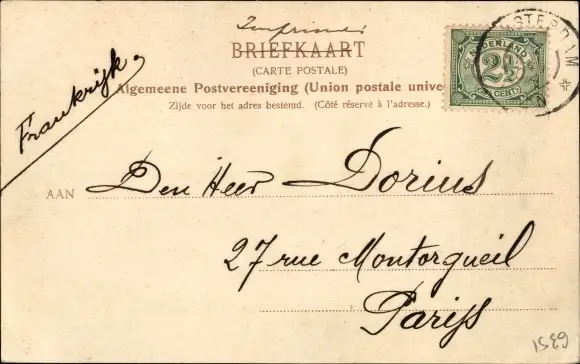 Imprimé
BRIEFKAART
(CARTE POSTALE)
Algemeene Postvereeniging (Union postale unive
Zijde voor het adres bestemd. (Côté réservé à l'adresse.)
Frankrijk
NEDERLAND
2½
CENT
AAN Den Heer Dorius
27 rue Montorgueil
Parijs
1589